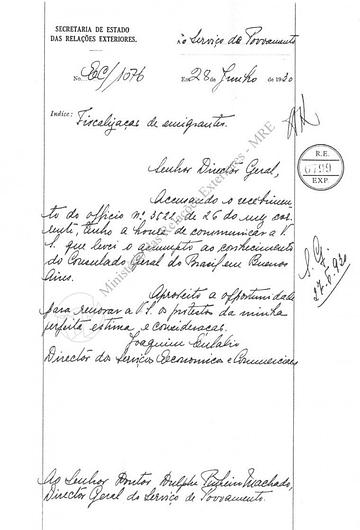 SECRETARIA DE ESTADO
DAS RELAÇÕES EXTERIORES.
Ao Serviço de Povoamento
No. EC/1076
Em 28 de Junho de 1930
Indice: Fiscalização de emigrantes.
Senhor Director Geral,
R.E.
6799
EXP.
Accusando o recebimen-
to do officio nº 3522 de 26 do mez cor-
rente, tenho a honra de communicar a V.
S. que levei o assumpto ao conhecimento
do Consulado Geral do Brasil em Buenos
Aires.
Aproveito a opportunidade
para renovar a V.S. os protestos da minha
perfeita estima e consideração.
Joaquim Eulalio
Director dos Serviços Economicos e Commerciaes
Ao Senhor Doutor Dulphe Pinheiro Machado,
Director Geral do Serviço de Povoamento.
Ministério das Relações Exteriores - MRE